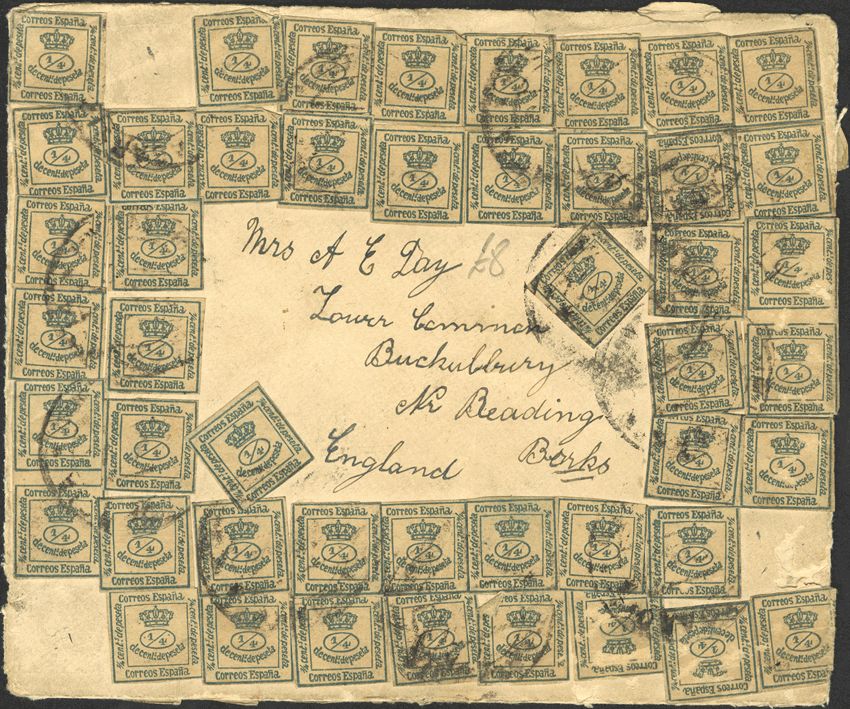 Correos España
¼ cent.º de peseta
1/4
de cent.º de peseta
Correos España
Mrs A E Day
£8
Lower Common
Buckulbbury
Nr Reading
Berks
England